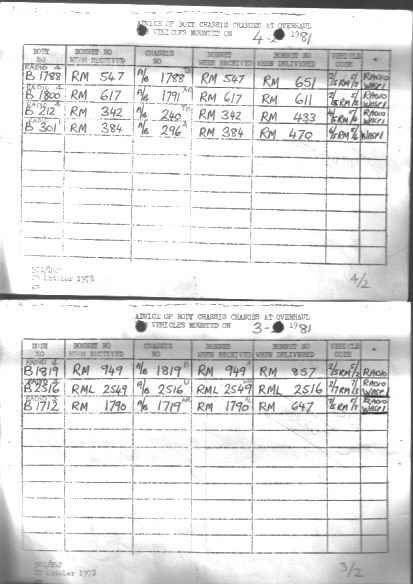 ADVICE OF BODY CHASSIS CHANGES AT OVERHAUL
VEHICLES MOUNTED ON 4- 1981
BODY NO BONNET NO WHEN RECEIVED CHASSIS NO BONNET WHEN RECEIVED BONNET NO WHEN DELIVERED VEHICLE CODE *
RADIO 4
B 1788 RM 547 A/B 1788 RM 547 RM 651 2/5RM 5/3 RADIO WASP1
RADIO 4
B 1800 RM 617 A/B 1791 AR RM 617 RM 611 2/5RM 5/3 RADIO WASP1
RADIO 4
B 212 RM 342 A/B 240 RM 342 RM 433 RADIO WASP1
B 301 RM 384 A/B 296 RM 384 RM 470 WASP1
October 1978
4/2
ADVICE OF BODY CHASSIS CHANGES AT OVERHAUL
VEHICLES MOUNTED ON 3- 1981
BODY NO BONNET NO WHEN RECEIVED CHASSIS NO BONNET WHEN RECEIVED BONNET NO WHEN DELIVERED VEHICLE CODE *
RADIO 4
B1819 RM 949 A/B 1819 B RM 949 RM 857 2/5RM 5/3 RADIO
RADIO 4
B2516 RML 2549 A/B 2516 RML 2549 RML 2516 2/7RM 7/3 RADIO WASP1
B1712 RM 1790 A/B 1719 AR RM 1790 RM 647 RADIO WASP1
October 1978
3/2